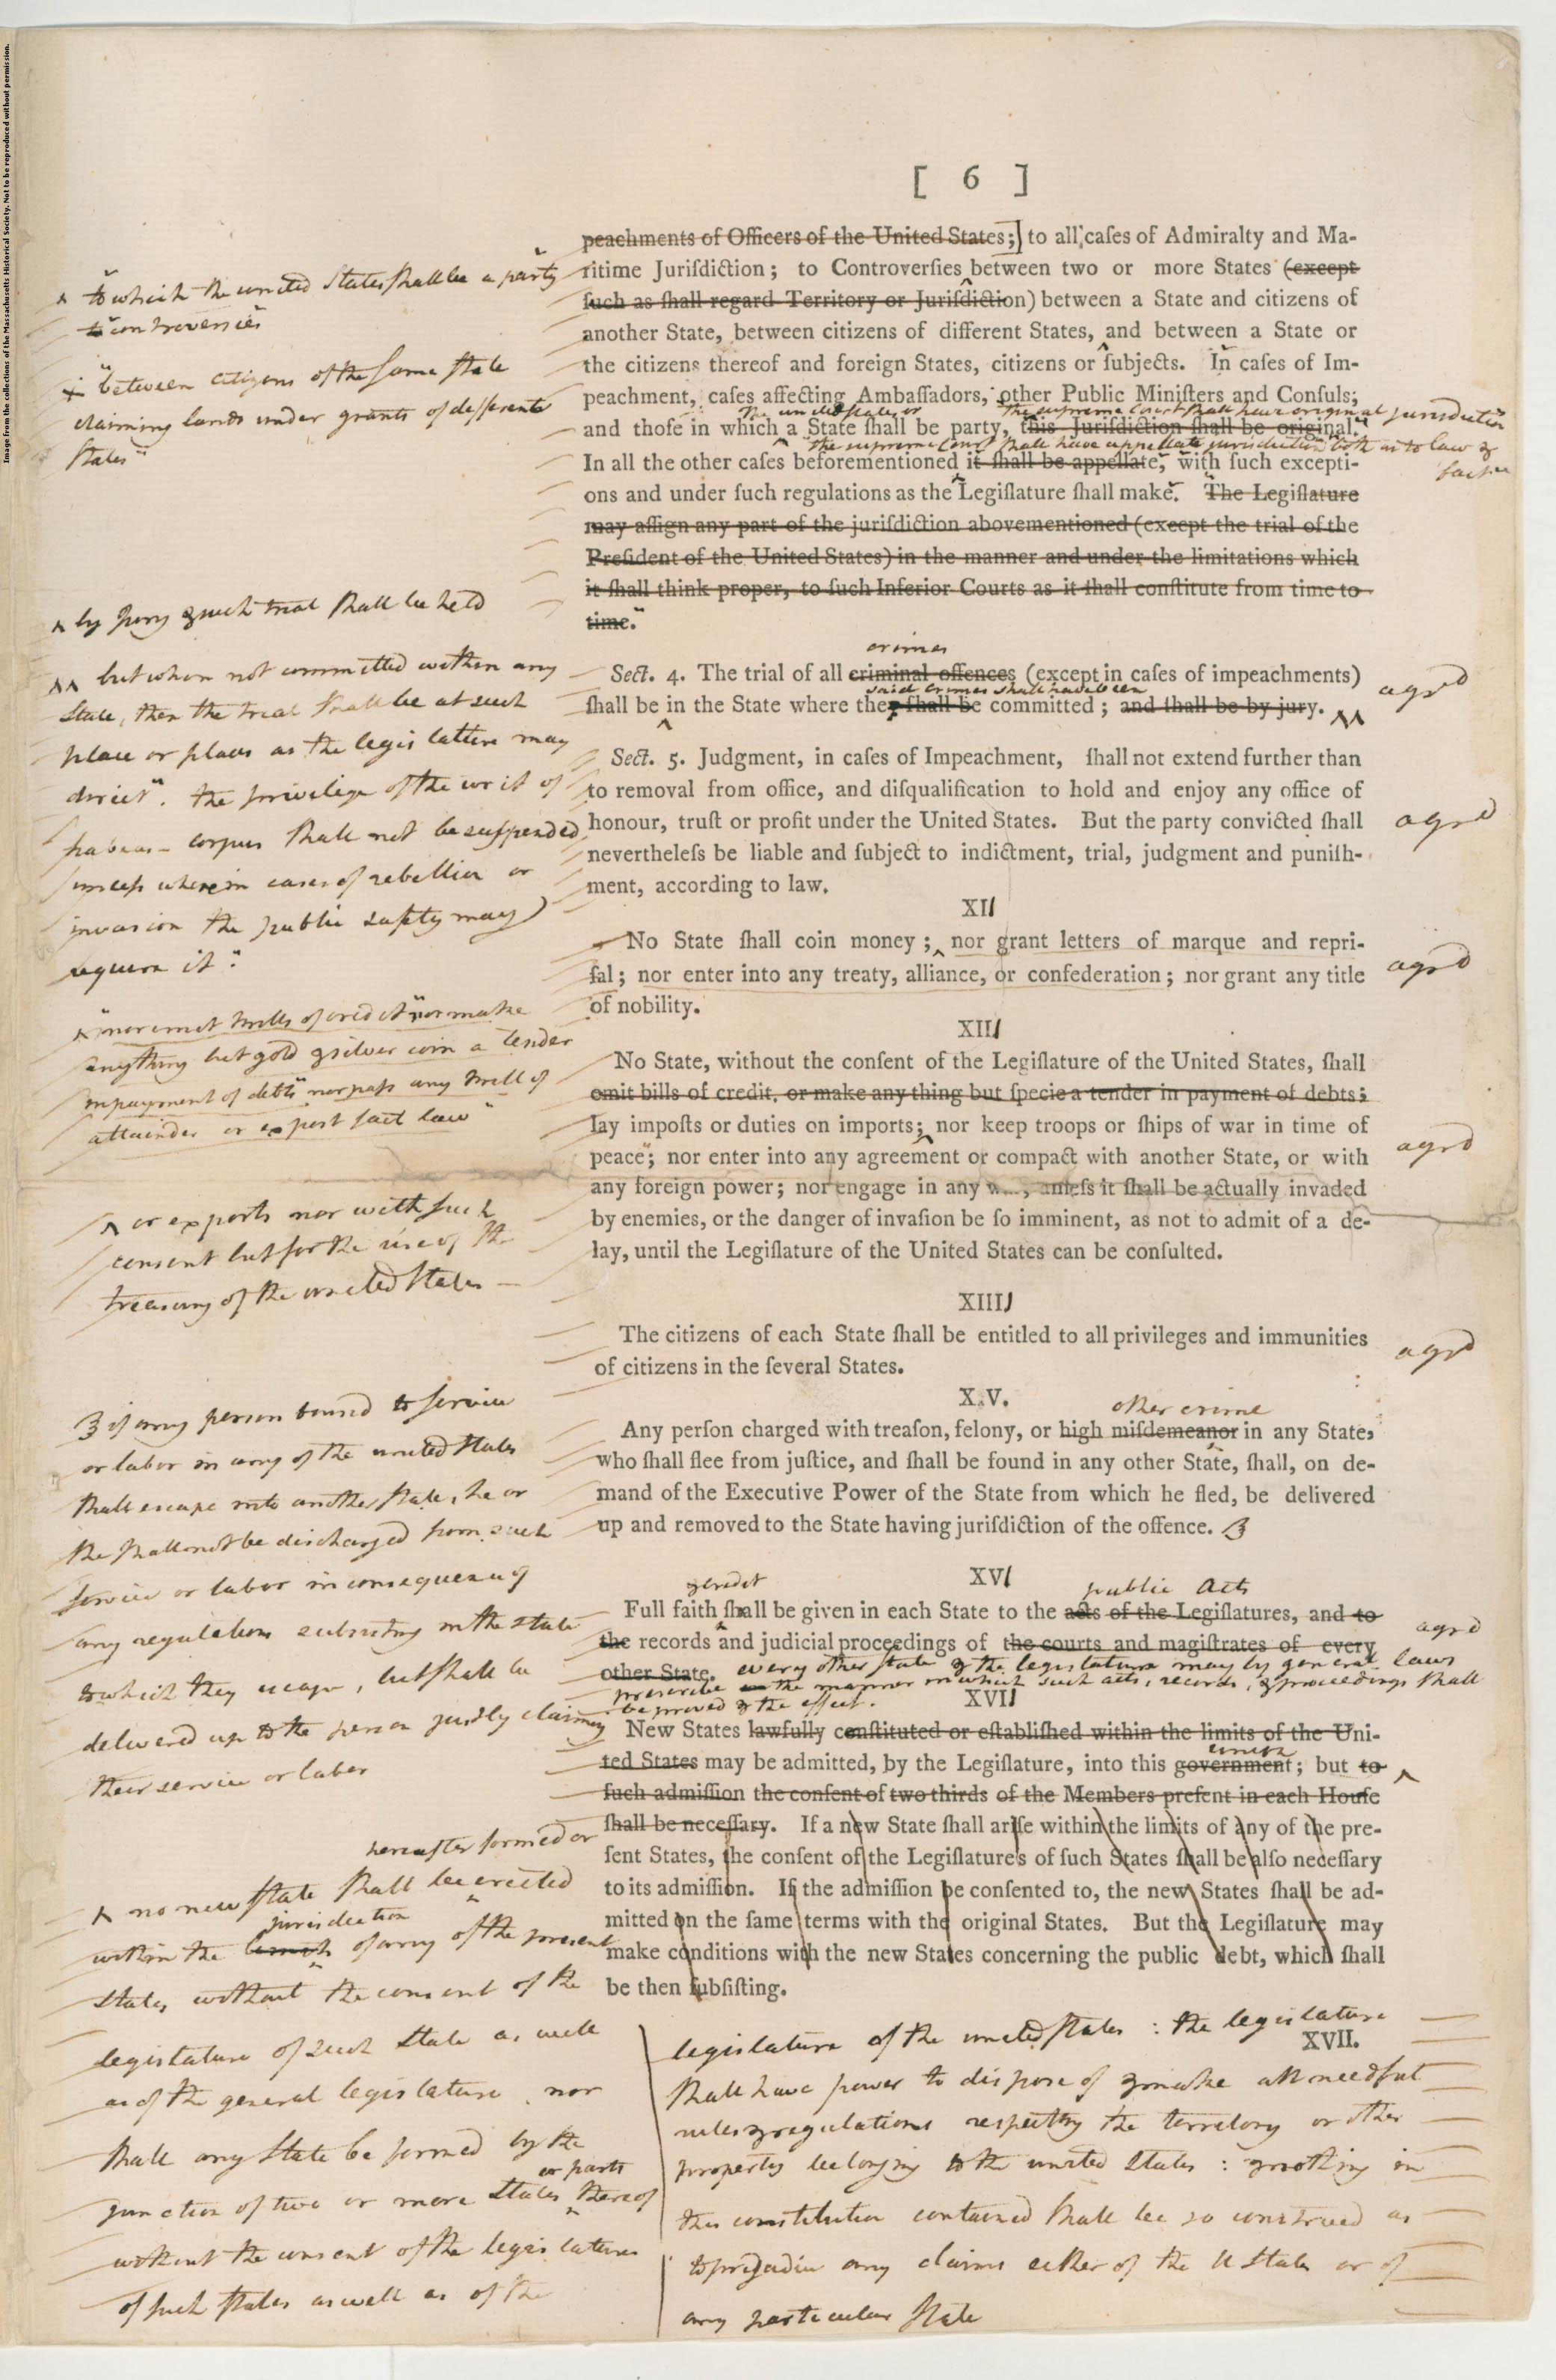 Image from the collections of the Massachusetts Historical Society. Not to be reproduced without permission.
[ 6 ]
peachments of Officers of the United States;] to all caſes of Admiralty and Ma-
ritime Juriſdiction; to Controverſies between two or more States (except
ſuch as ſhall regard Territory or Juriſdiction) between a State and citizens of
another State, between citizens of different States, and between a State or
the citizens thereof and foreign States, citizens or ſubjects. In caſes of Im-
peachment, caſes affecting Ambaſſadors, other Public Miniſters and Conſuls;
the united states or the supreme Court shall have original jurisdiction
and thoſe in which a State ſhall be party, this Juriſdiction ſhall be original."
"the supreme Court shall have appellate jurisdiction both as to law &
fact"
In all the other caſes beforementioned it ſhall be appellate, with ſuch excepti-
ons and under ſuch regulations as the Legiſlature ſhall make. The Legiſlature
may aſſign any part of the juriſdiction abovementioned (except the trial of the
Preſident of the United States) in the manner and under the limitations which
it ſhall think proper, to ſuch Inferior Courts as it ſhall conſtitute from time to
time."
crimes
Sect. 4. The trial of all criminal offences (except in caſes of impeachments)
agrd
said crimes shall have been
ſhall be in the State where they ſhall be committed; and ſhall be by jury. ^^
Sect. 5. Judgment, in caſes of Impeachment, ſhall not extend further than
to removal from office, and diſqualification to hold and enjoy any office of
honour, truſt or profit under the United States. But the party convicted ſhall
agrd
nevertheleſs be liable and ſubject to indictment, trial, judgment and puniſh-
ment, according to law.
XII
No State ſhall coin money; ^ nor grant letters of marque and repri-
ſal; nor enter into any treaty, alliance, or confederation; nor grant any title
agrd
of nobility.
XIII
No State, without the conſent of the Legiſlature of the United States, ſhall
emit bills of credit, or make any thing but ſpecie a tender in payment of debts;
lay impoſts or duties on imports; ^ nor keep troops or ſhips of war in time of
agrd
peace"; nor enter into any agreement or compact with another State, or with
any foreign power; nor engage in any unleſs it ſhall be actually invaded
by enemies, or the danger of invaſion be ſo imminent, as not to admit of a de-
lay, until the Legiſlature of the United States can be conſulted.
XIIII
The citizens of each State ſhall be entitled to all privileges and immunities
agrd
of citizens in the ſeveral States.
XV.
other crime
Any perſon charged with treaſon, felony, or high miſdemeanor in any State,
who ſhall flee from juſtice, and ſhall be found in any other State, ſhall, on de-
mand of the Executive Power of the State from which he fled, be delivered
up and removed to the State having juriſdiction of the offence. B
XVI
& credit public acts
Full faith ſhall be given in each State to the acts of the Legiſlatures, and to
agrd
the records and judicial proceedings of the courts and magiſtrates of every
other State. every other state & the legislature may by general laws
prescribe the manner in which such acts, records, & proceedings shall
be proved & the effect.
XVII
New States lawfully conſtituted or eſtabliſhed within the limits of the Uni-
union
ted States may be admitted, by the Legiſlature, into this government; but to ^
ſuch admiſſion the conſent of two thirds of the Members preſent in each Houſe
ſhall be neceſſary. If a new State ſhall ariſe within the limits of any of the pre-
ſent States, the conſent of the Legiſlatures of ſuch States ſhall be alſo neceſſary
to its admiſſion. If the admiſſion be conſented to, the new States ſhall be ad-
mitted on the ſame terms with the original States. But the Legiſlature may
make conditions with the new States concerning the public debt, which ſhall
be then ſubſiſting.
XVII.
^ "to which the united States shall be a party
to controversies
+ "between citizens of the same state
claiming lands under grants of different
States"
^ by Jury & such trial shall be held
^^ but when not committed within any
State, then the trial shall be at such
place or places as the legislature may
direct". the privilege of the writ of
habeas-corpus shall not be suspended
unless where in cases of rebellion or
invasion the public safety may
require it"
^ "nor emit bills of credit" "nor make
anything but gold & silver coin a tender
in payment of debts" nor pass any bill of
attainder or ex post facto law"
^ or exports nor with such
consent but for the use of the
treasury of the united States
B if any person bound to service
or labor in any of the united States
shall escape into another State, he or
she shall not be discharged from such
service or labor in consequence of
any regulations subsisting in the state
to which they escape, but shall be
delivered up to the person justly claiming
their service or labor
hereafter formed or
^ no new State shall be erected
jurisdiction
within the limits of any of the present
States without the consent of the
legislature of such State as well
as of the general legislature. nor
shall any State be formed by the
or parts
junction of two or more States thereof
without the consent of the legislatures
of such States as well as of the
legislature of the united States: the legislature
shall have power to dispose of & make all needful
rules & regulations respecting the territory or other
property belonging to the united States: & nothing in
this constitution contained shall be so construed as
to prejudice any claims either of the U States or of
any particular State